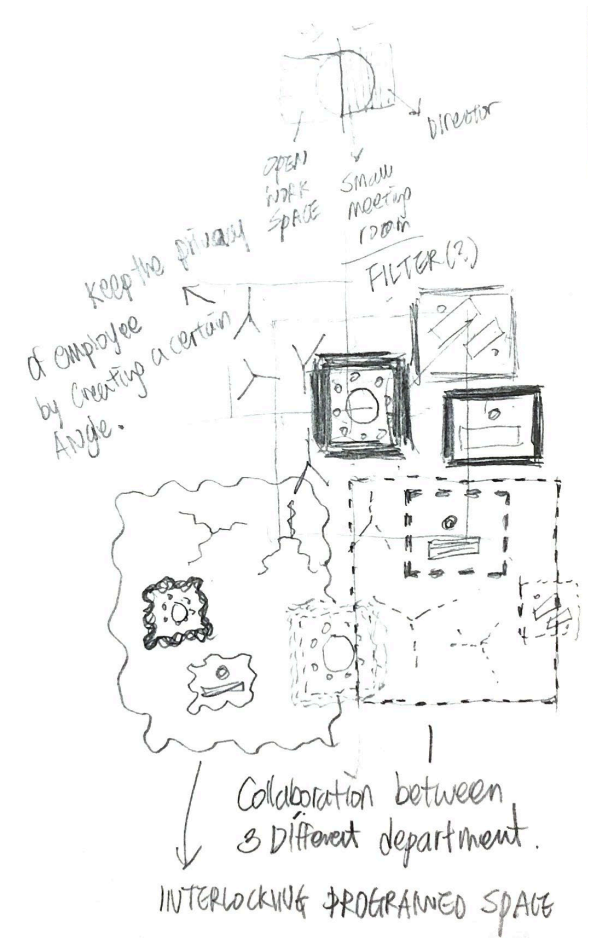 Director
OPEN
WORK
SPACE
Small
meeting
room
FILTER(?)
Keep the privacy
of employee
by Creating a certain
Angle.
Collaboration between
3 Different department.
INTERLOCKING PROGRAMED SPACE